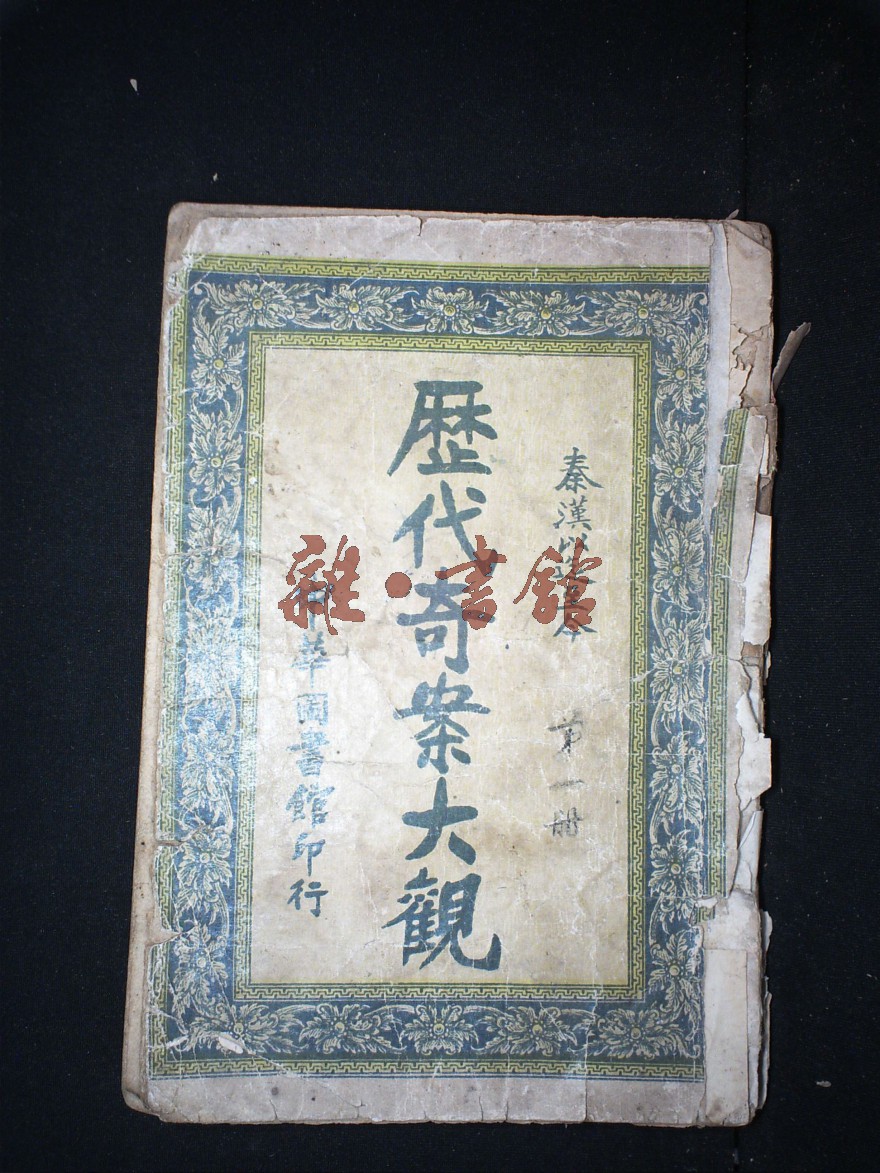 秦漢
第一冊
歷代奇案大觀
華圖書館印行
雜·書館